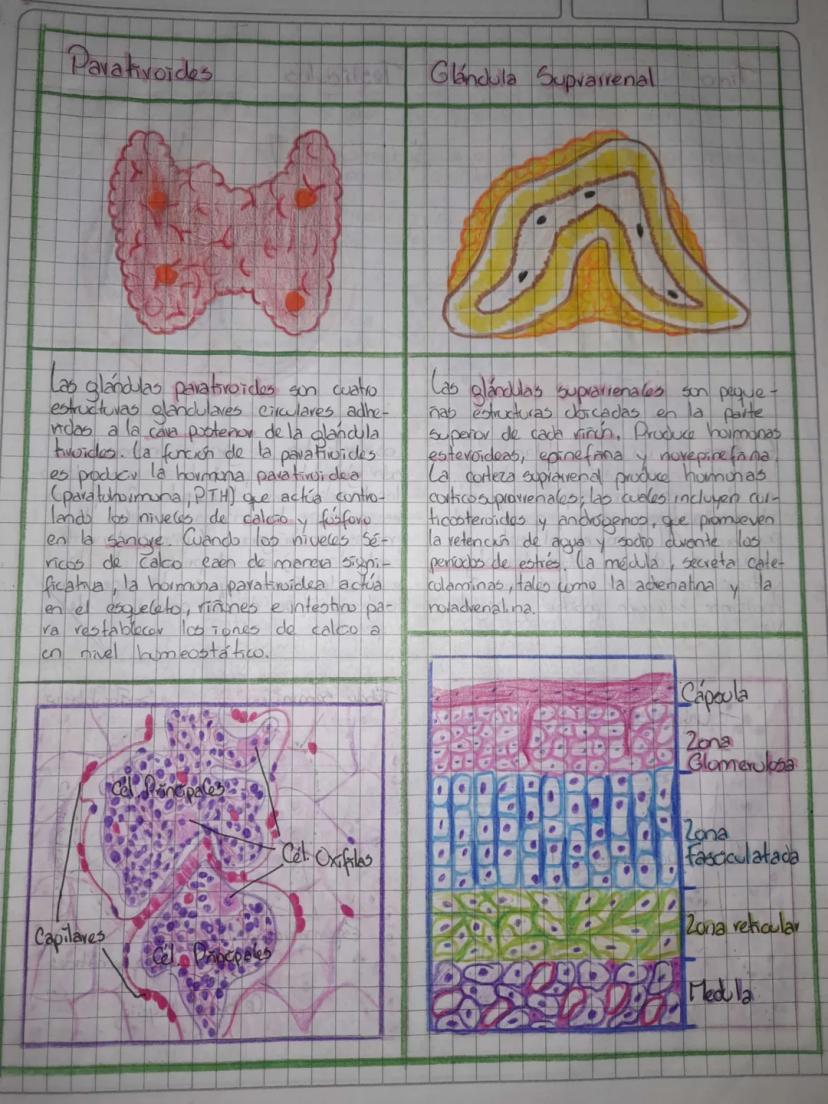 Paratiroides
Las glándulas paratiroides son cuatro
estructuras glandulares circulares adhe-
ridas a la cara posterior de la glándula
tiroides. La función de la paratiroides
es producir la hormona paratiroidea
(paratohormona, PTH) que actúa contro-
lando los niveles de calcio y fósforo
en la sangre. Cuando los niveles sé-
ricos de calco caen de manera signi-
ficativa, la hormona paratiroidea actúa
en el esqueleto, riñones e intestino pa-
ra restablecer los iones de calco a
en nivel homeostático.
Cél. Principales
Cél. Oxifilas
Capilares
Cél. Principales
Glándula Suprarrenal
Las glándulas suprarrenales son peque-
ñas estructuras ubicadas en la parte
superior de cada riñón. Produce hormonas
esteroideas, epinefrina y norepinefrina.
La corteza suprarrenal produce hormonas
corticosuprarrenales; las cueles incluyen cor-
ticosteroides y andrógenos, que promueven
la retención de agua y sodio durante los
periodos de estrés. La médula, secreta cate-
colaminas, tales como la adrenalina y la
noradrenalina.
Cápsula
Zona
Glomerulosa
Zona
fasciculatada
Zona reticular
Medula